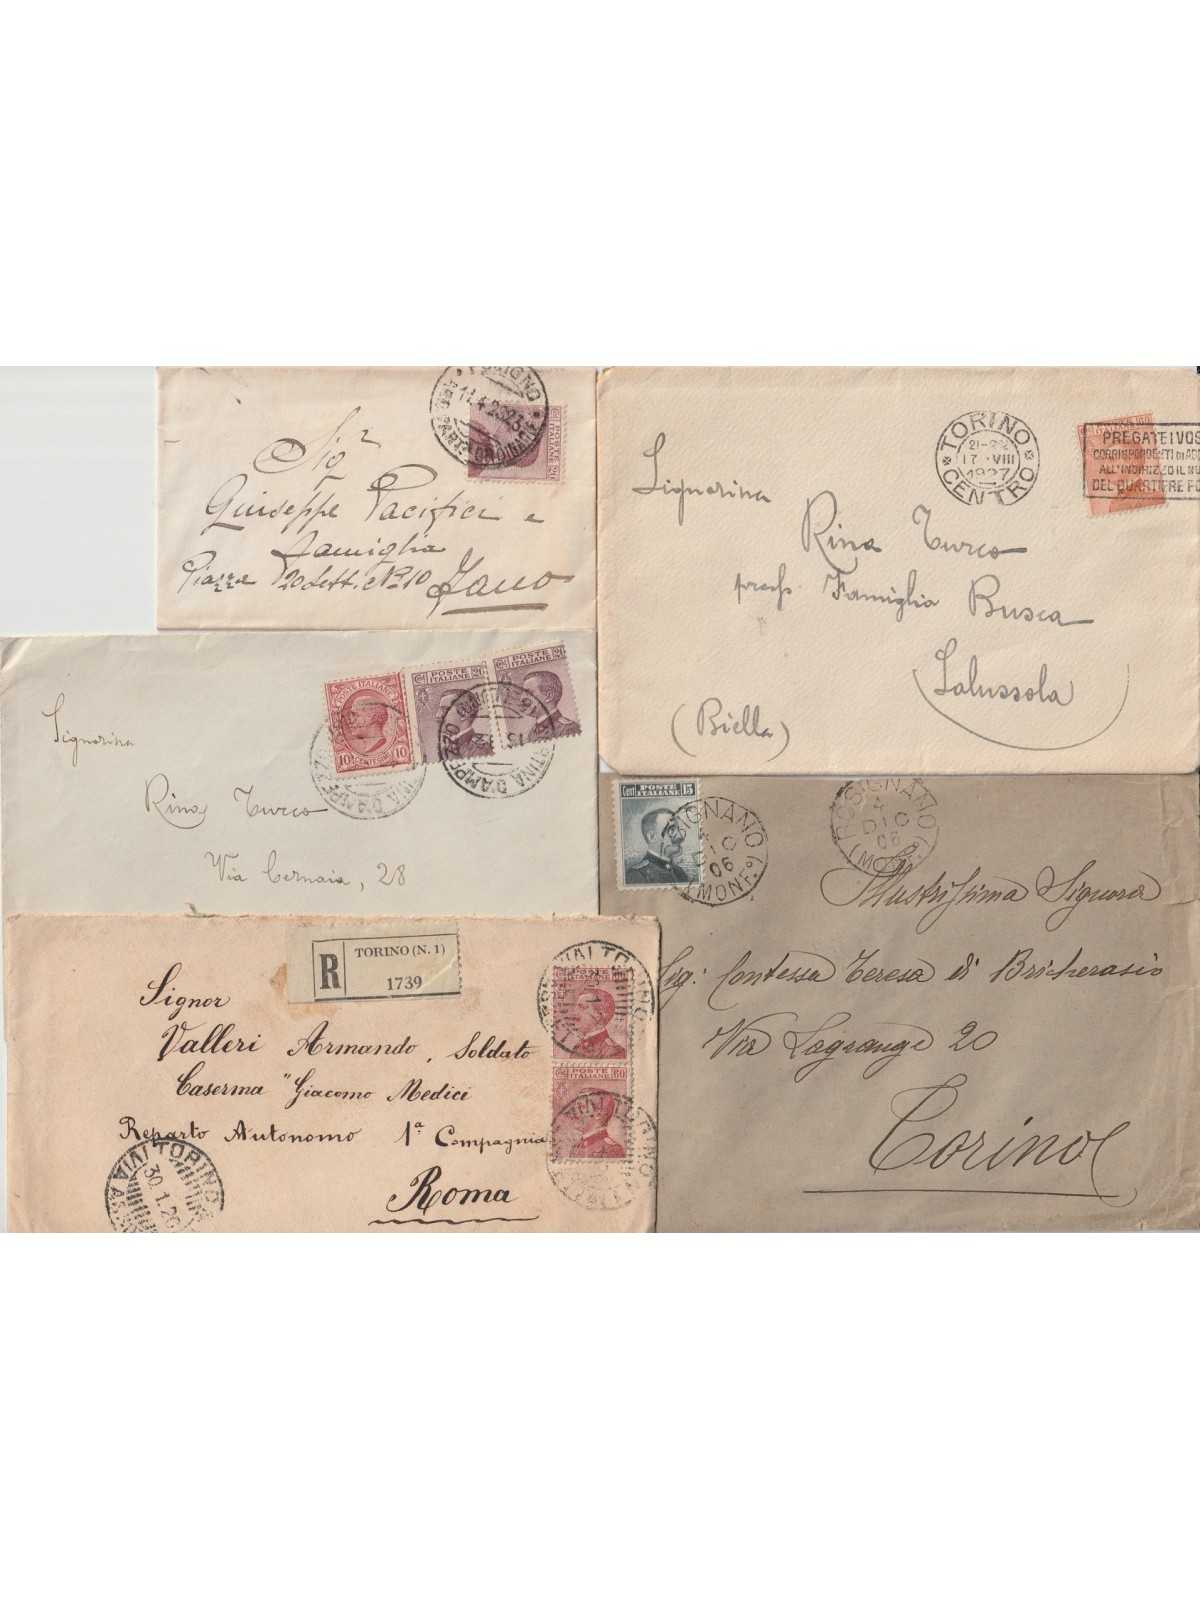 11.4.23
POSTE ITALIANE
Sigr
Giuseppe Pacifici e
Famiglia
Piazza 20 Sett. e No 10 Fano
TORINO
CENTRO
17 VIII
1927
PREGATE I VOS
CORRISPONDENTI DI AGG
ALL'INDIRIZZO IL NU
DEL QUARTIERE PO
Signorina
Rina Turco
press. Famiglia Busca
Salussola
(Biella)
POSTE ITALIANE
10 CENTESIMI 10
POSTE
ITALIANE
POSTE
ITALIANE
CORTINA D'AMPEZZO
Signorina
Rina Turco
Via Cernaia, 28
Cent POSTE ITALIANE 15
ROSIGNANO
4
DIC
06
(MONF.o)
ROSIGNANO
4
DIC
06
(MONF.o)
Illustrissima Signora
Sig: Contessa Teresa di Bricherasio
Via Lagrange 20
Torino
R
TORINO (N. 1)
1739
POSTE
ITALIANE
60
TORINO
Signor
Valleri Armando, Soldato
Caserma "Giacomo Medici
Reparto Autonomo 1a Compagnia
Roma
TORINO
30.1.26